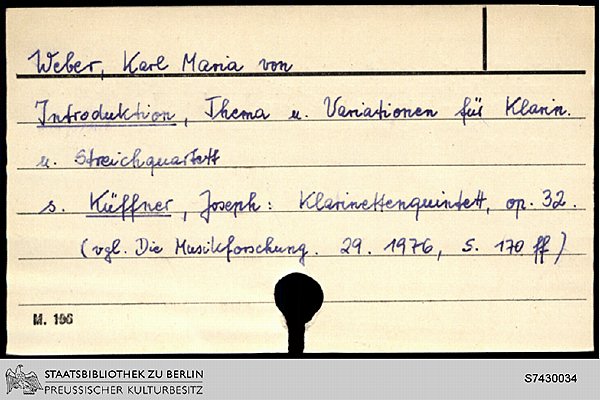 Weber, Karl Maria von
Introduktion, Thema u. Variationen für Klarin.
u. Streichquartett
s. Küffner, Joseph: Klarinettenquintett, op. 32.
(vgl. Die Musikforschung. 29. 1976, S. 170 ff)
M. 196
STAATSBIBLIOTHEK ZU BERLIN
PREUSSISCHER KULTURBESITZ
S7430034